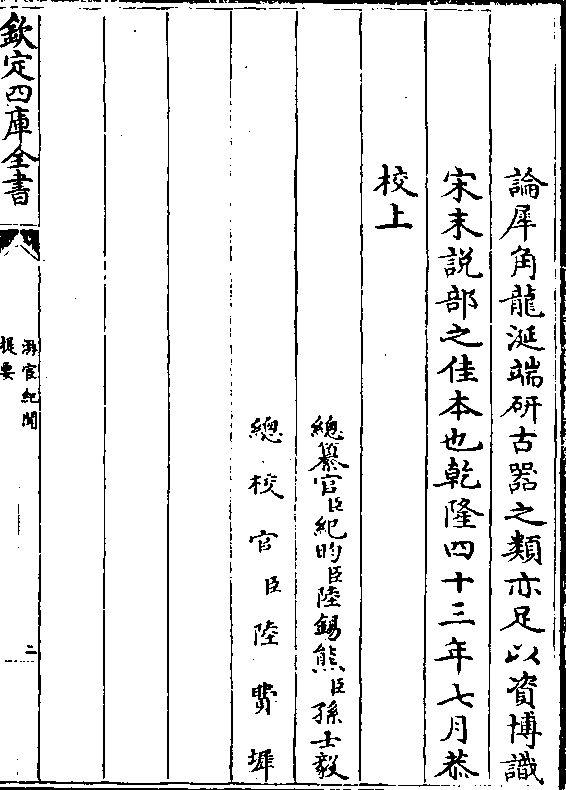 論犀角龍涎端研古器之類亦足以資博識
宋末說部之佳本也乾隆四十三年七月恭
校上
總纂官臣紀昀臣陸錫熊臣孫士毅
總校官臣陸費墀
欽定四庫全書
游宦紀聞
提要
二